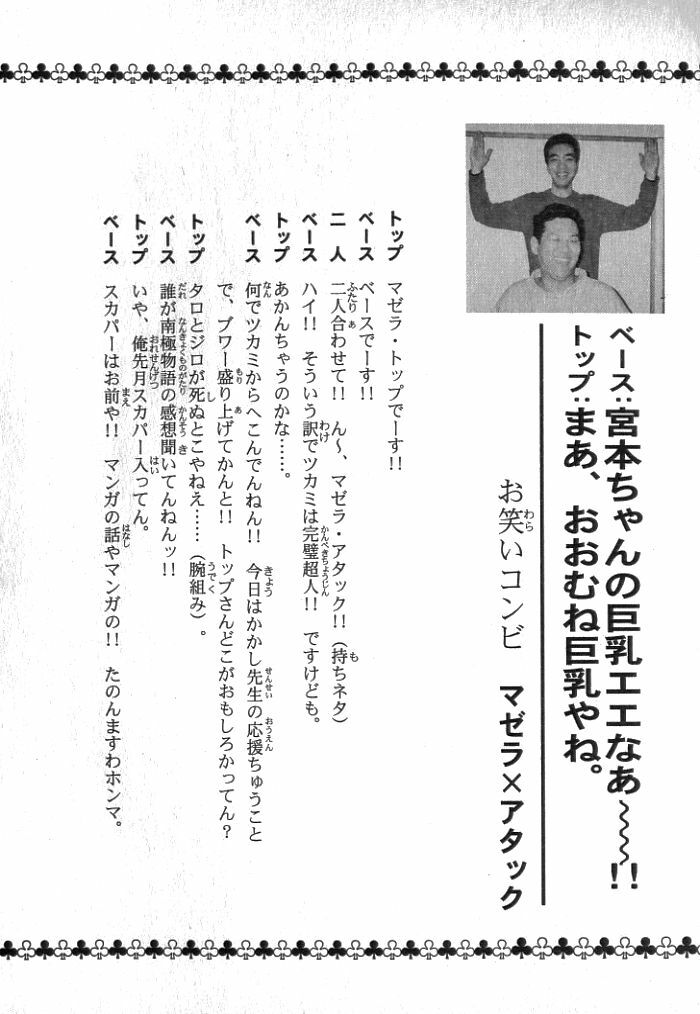 ベース:宮本ちゃんの巨乳エエなあ〜〜〜!!
トップ:まあ、おおむね巨乳やね。
お笑いコンビ マゼラ×アタック
トップ マゼラ・トップでーす!!
ベース ベースでーす!!
二人 二人合わせて!! ん〜、マゼラ・アタック!!(持ちネタ)
ベース ハイ!! そういう訳でツカミは完璧超人!! ですけども。
トップ あかんちゃうのかな……。
ベース 何でツカミからへこんでんねん!! 今日はかかし先生の応援ちゅうこと
で、ブワー盛り上げてかんと!! トップさんどこがおもしろかってん?
トップ タロとジロが死ぬとこやねえ……(腕組み)。
ベース 誰が南極物語の感想聞いてんねんッ!!
トップ いや、俺先月スカパー入ってん。
ベース スカパーはお前や!! マンガの話やマンガの!! たのんますわホンマ。